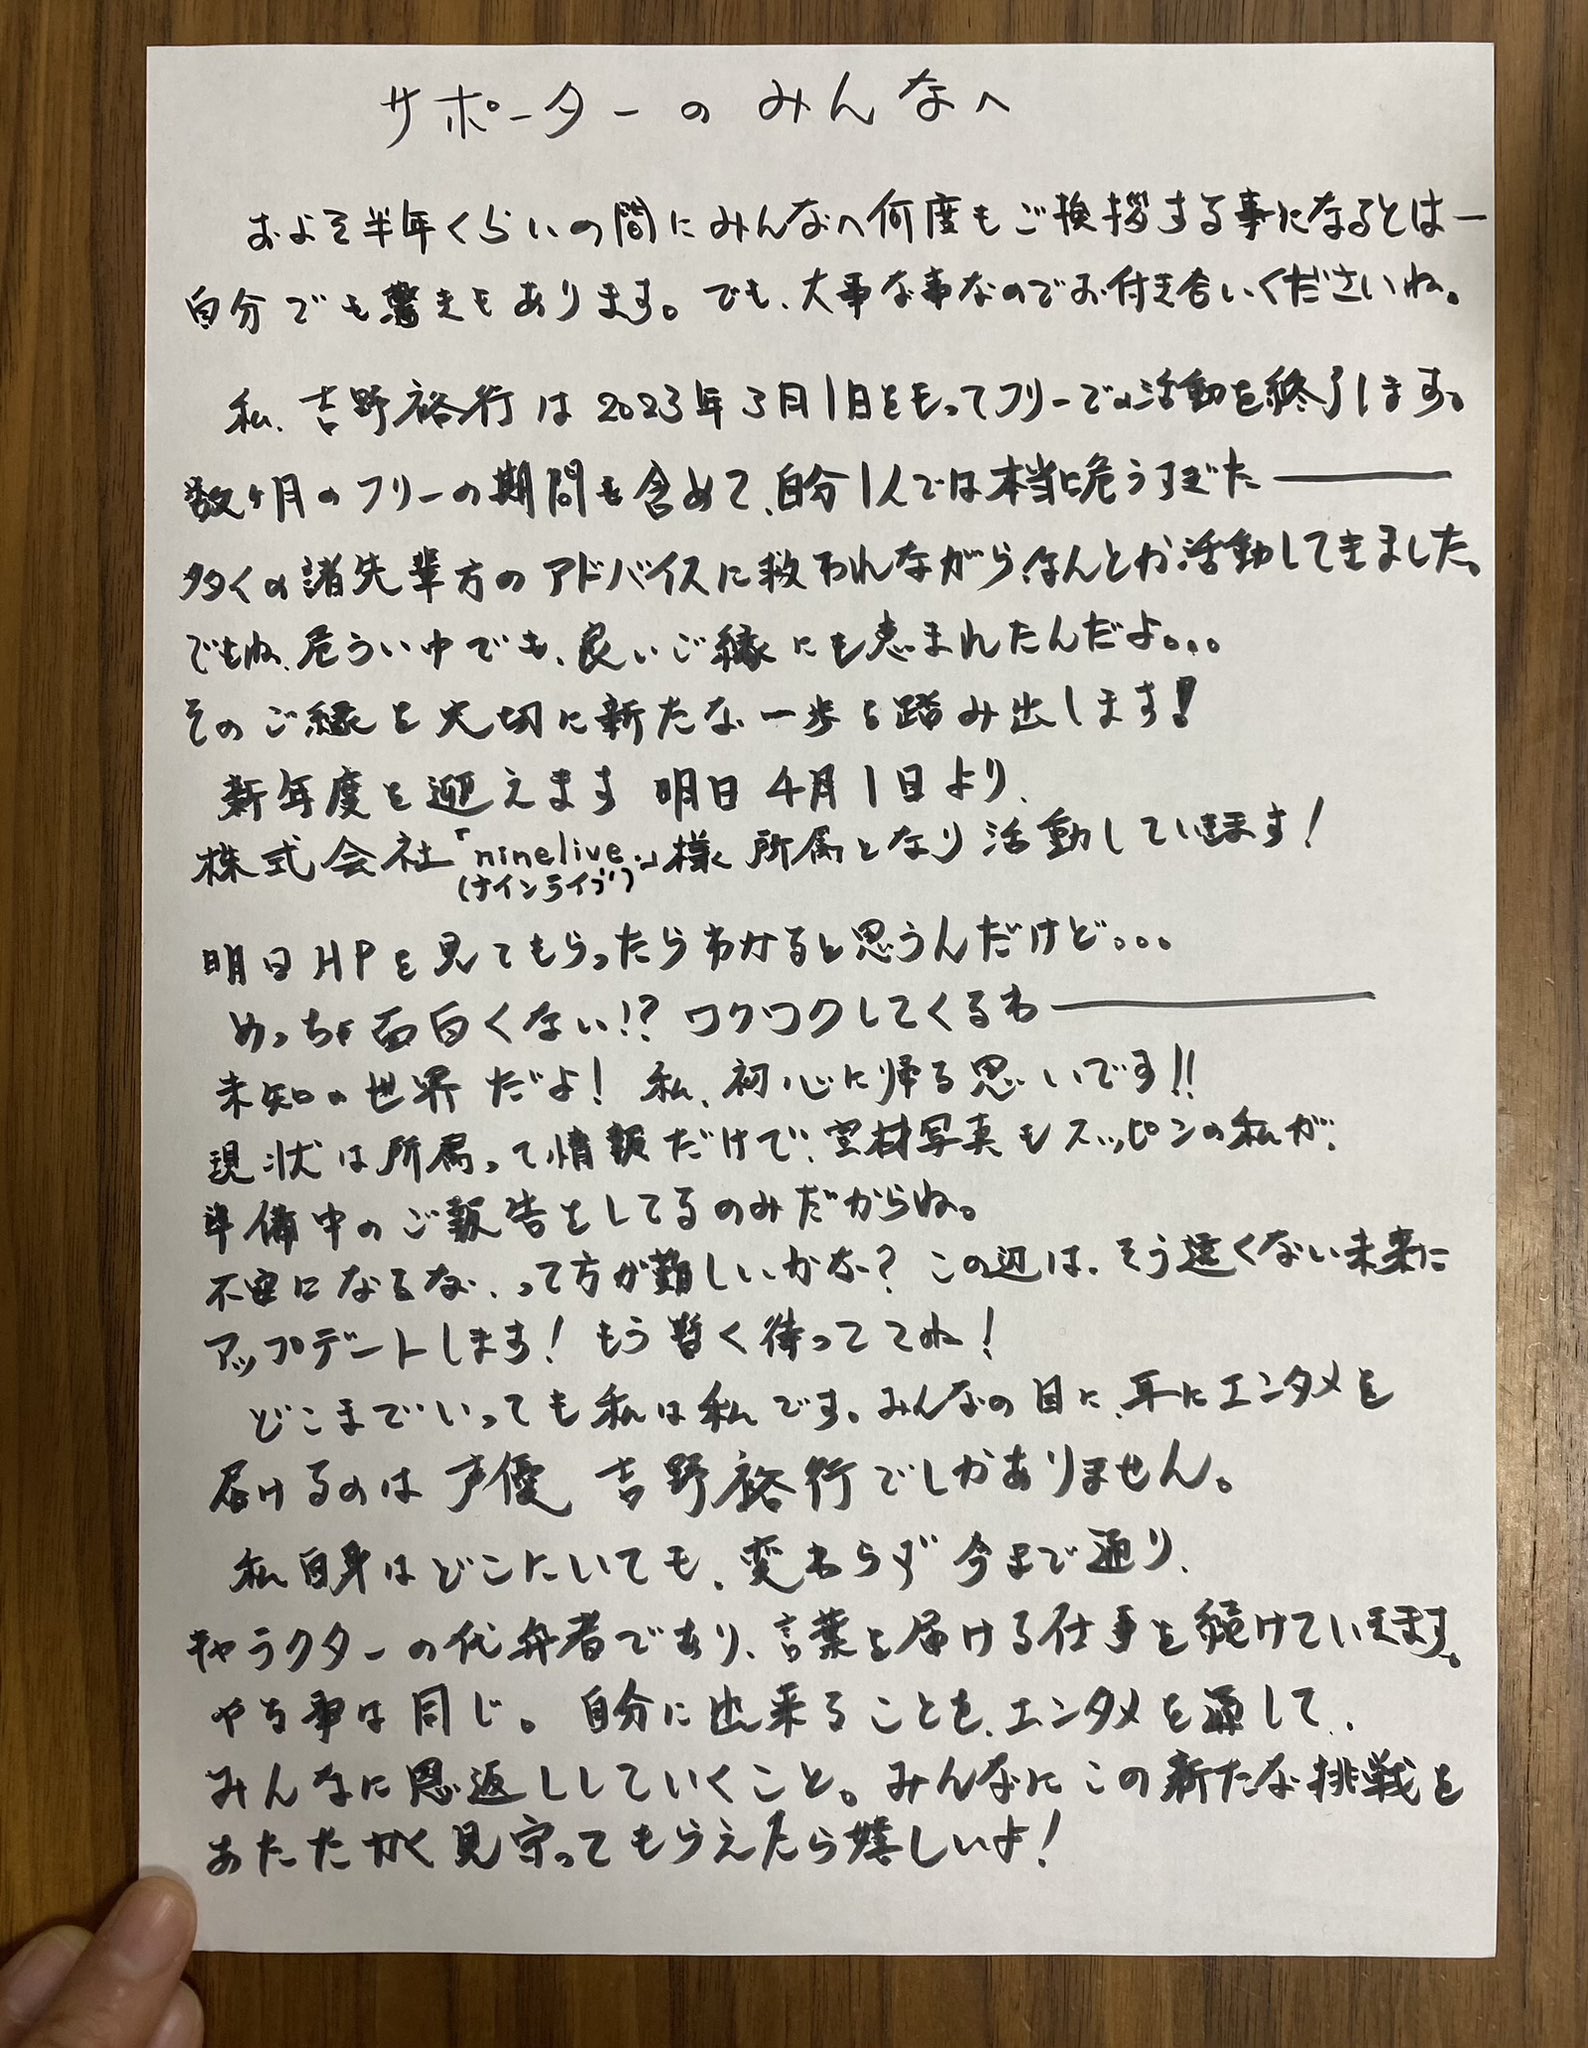 サポーターのみんなへ
およそ半年くらいの間にみんなへ何度もご挨拶する事になるとはー
自分でも驚きもあります。でも、大事な事なのでお付き合いくださいね。
私、吉野裕行は2023年3月1日をもってフリーでの活動を終了します。
数ヶ月のフリーの期間も含めて、自分1人では本当に危うすぎたー
多くの諸先輩方のアドバイスに救われながら、なんとか活動してきました。
でもね、危うい中でも、良いご縁にも恵まれたんだよ。。。
そのご縁を大切に新たな一歩を踏み出します!
新年度を迎えます 明日4月1日より、
株式会社「ninelive」様へ所属となり活動していきます!
(ナインライブ)
明日HPを見てもらったらわかると思うんだけど。。。
めっちゃ面白くない!? ワクワクしてくるわー
未知の世界だよ! 私、初心に帰る思いです!!
現状は所属って情報だけで、宣材写真もスッピンの私が、
準備中のご報告をしてるのみだからね。
不安になるな、って方が難しいかな? この辺は、そう遠くない未来に
アップデートします! もう暫く待っててね!
どこまでいっても私は私です。みんなの目に、耳にエンタメを
届けるのは声優 吉野裕行でしかありません。
私自身はどこにいても、変わらず今まで通り、
キャラクターの代弁者であり、言葉を届ける仕事を続けていきます。
やる事は同じ。自分に出来ることを、エンタメを通して、
みんなに恩返ししていくこと。みんなにこの新たな挑戦を
あたたかく見守ってもらえたら嬉しいよ!